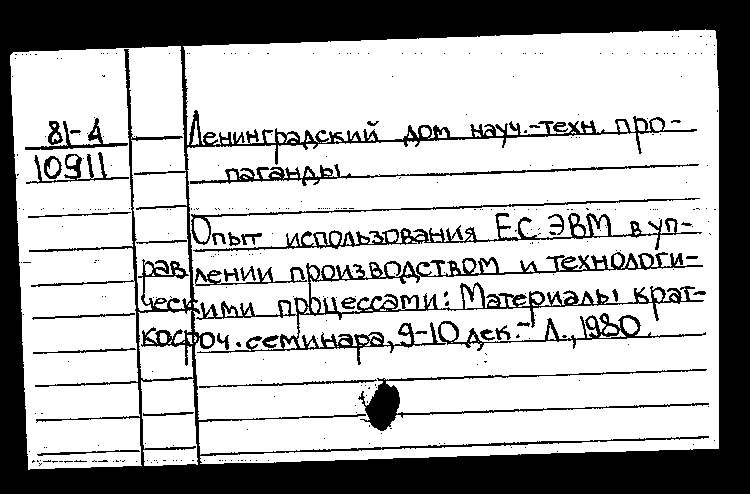 81-4
10911
Ленинградский дом науч.-техн. про-
паганды.
Опыт использования ЕС ЭВМ в уп-
равлении производством и технологи-
ческими процессами: Материалы крат-
косроч. семинара, 9-10 дек.- Л., 1980.